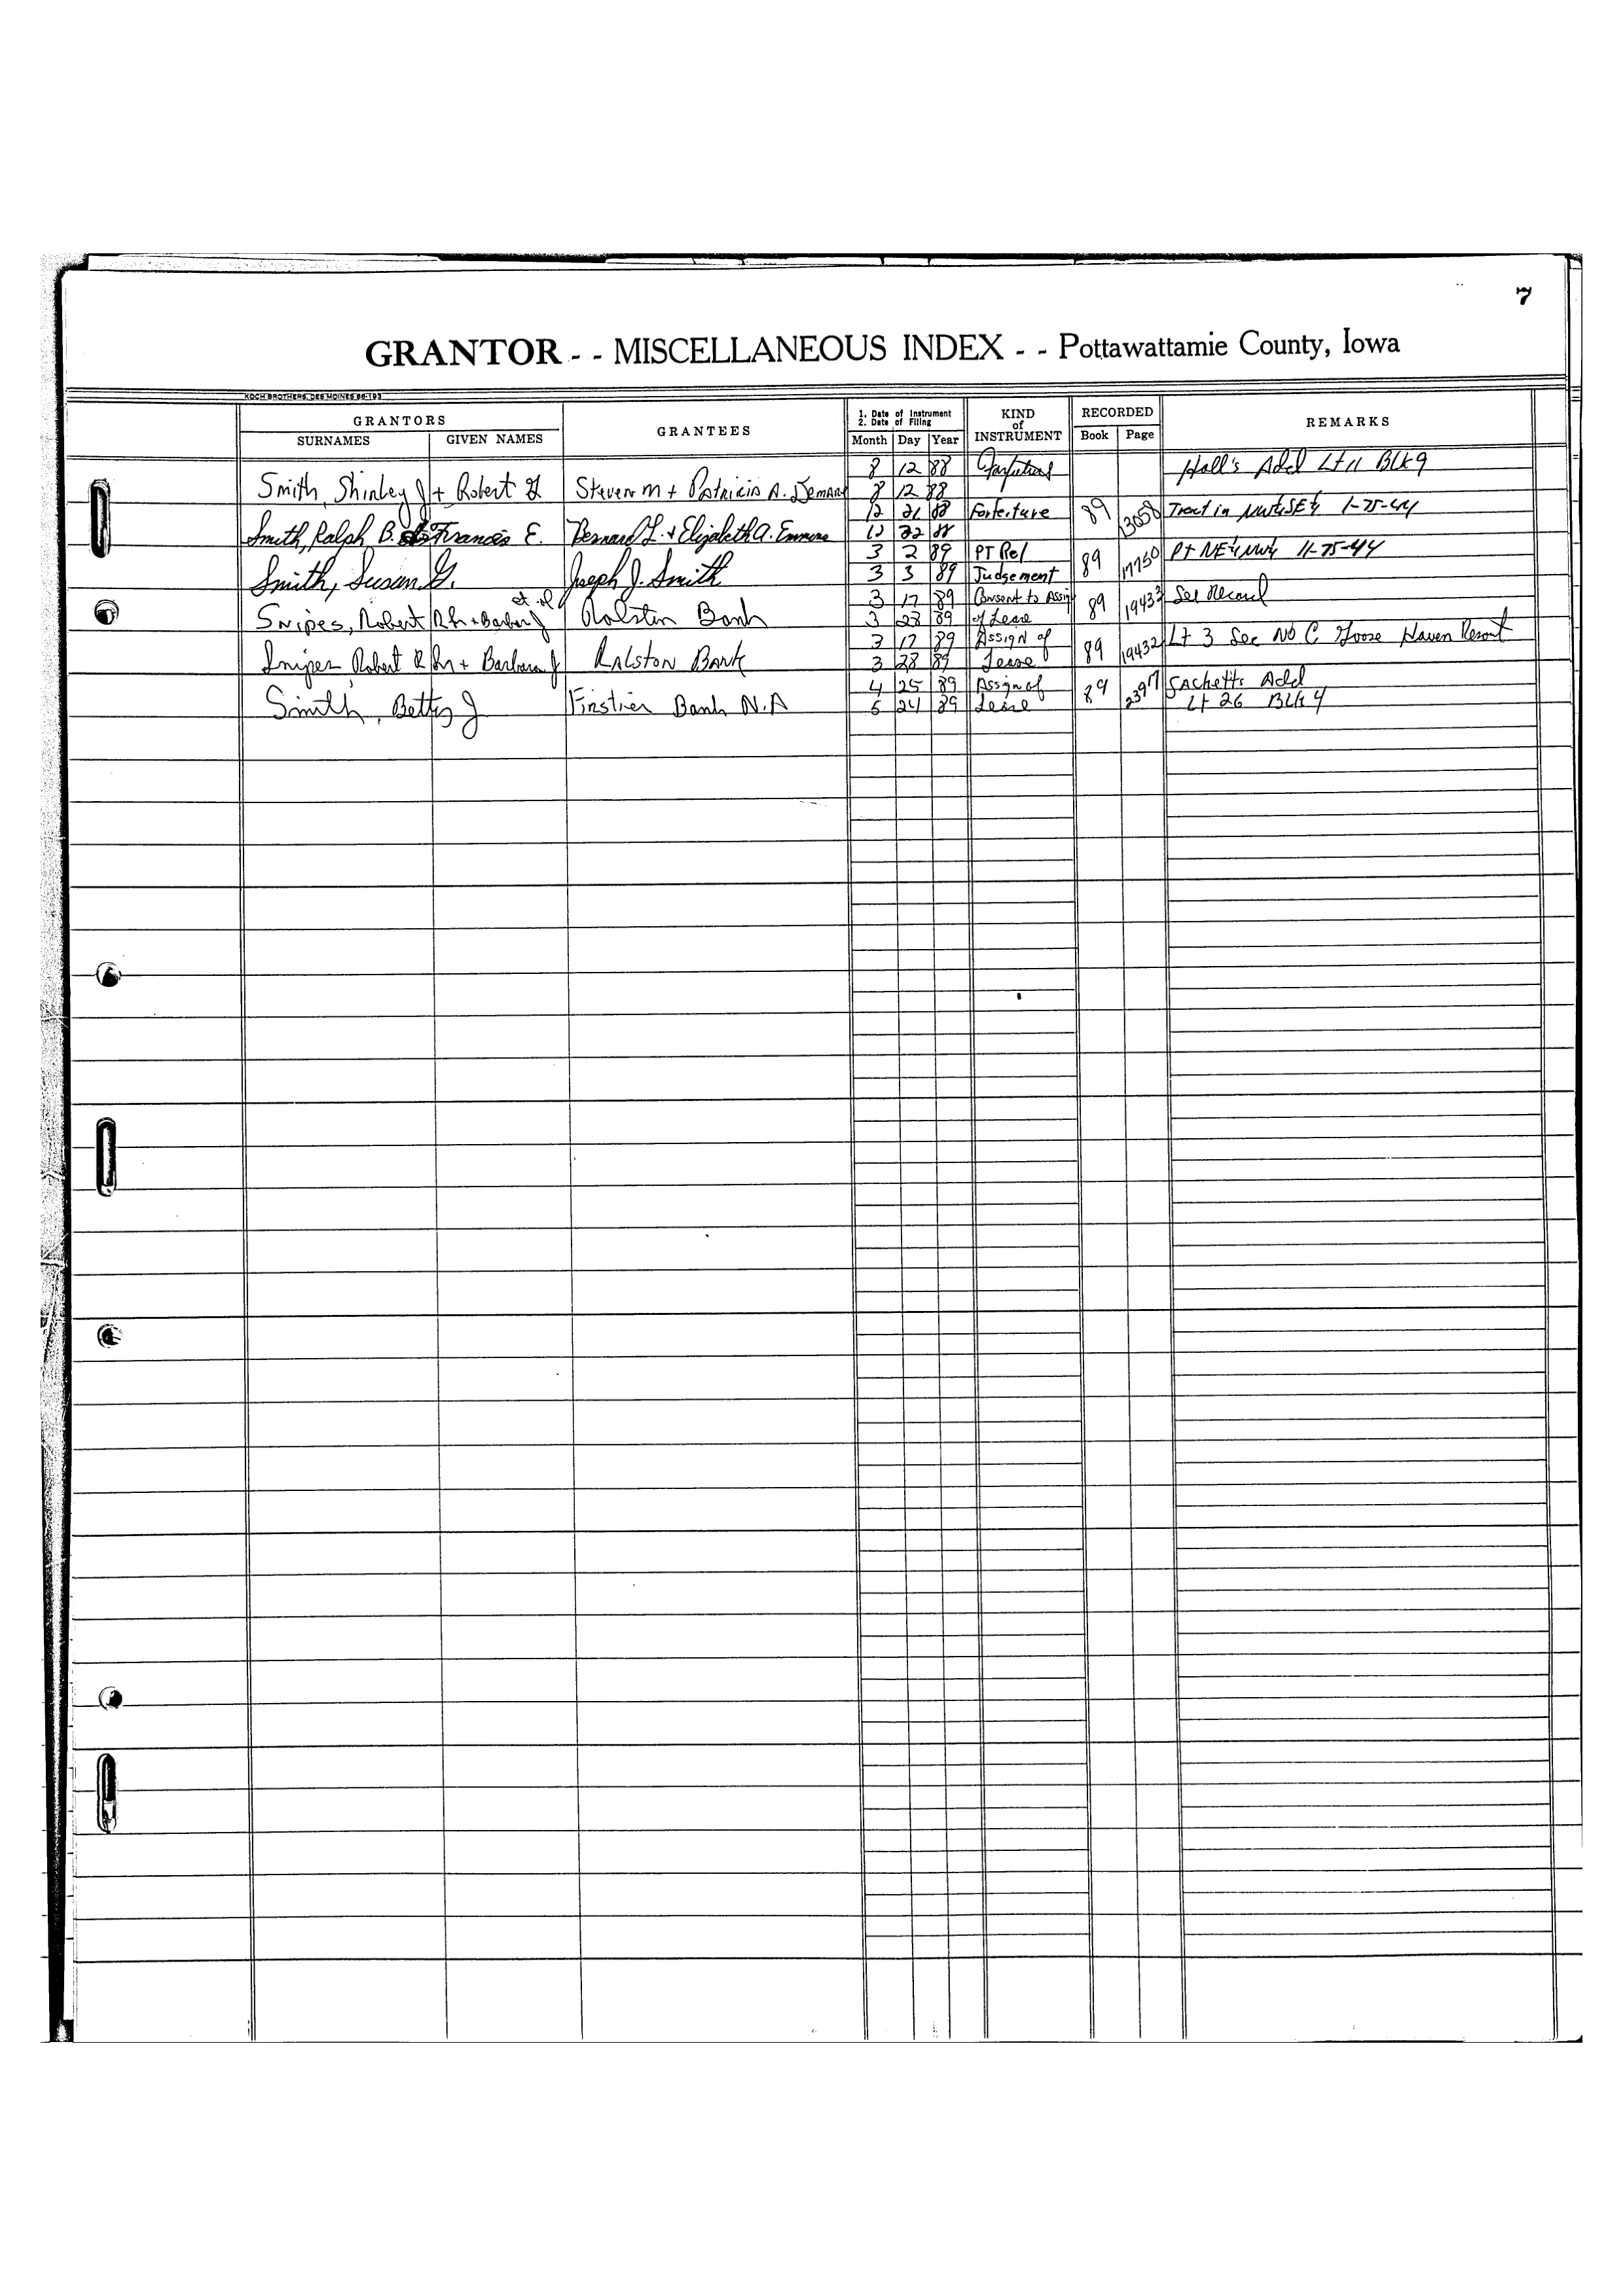 7
GRANTOR - - MISCELLANEOUS INDEX - - Pottawattamie County, Iowa
KOCH BROTHERS, DES MOINES 86-193
GRANTORS GRANTEES 1. Date of Instrument 2. Date of Filing KIND of INSTRUMENT RECORDED REMARKS
SURNAMES GIVEN NAMES Month Day Year Book Page
8 12 88 Hall's Add Lt 11 Blk 9
Smith, Shirley J + Robert Steven M + Patricia A. 8 12 88
12 21 88 Forfeiture 89 13058 Tract in NW¼SE¼ 1-75-44
Smith, Ralph B. Francis E. Bernard L. + Elizabeth A. Emmons 12 22 88
3 2 89 PT Rel 89 17750 Pt NE¼NW¼ 11-75-44
Smith, Susan G. Joseph J. Smith 3 3 89 Judgement
et al 3 17 89 Consent to Assign 89 19433 See Record
Snipes, Robert R Jr + Barbara J Ralston Bank 3 28 89 of Lease
3 17 89 Assign of 89 19432 Lt 3 Sec No C Goose Haven Resort
Snipes Robert R Jr + Barbara J Ralston Bank 3 28 89 Lease
4 25 89 Assign of 89 Sacketts Add
Smith, Betty J Firstier Bank N.A 5 24 89 Lease Lt 26 Blk 4